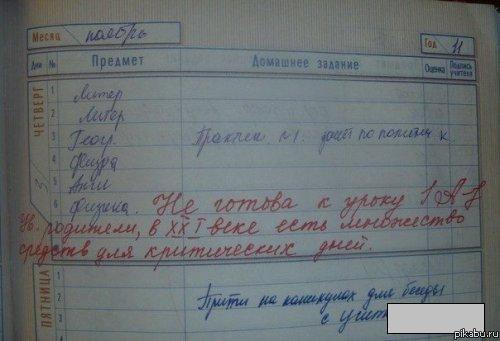 Месяц ноябрь Год 11
Дни № Предмет Домашнее задание Оценка Подпись учителя
ЧЕТВЕРГ 3
1 Литер
2 Литер
3 Геогр. Практич. №1. по политич к.
4 Физра
5 Англ
6 Физика. Не готова к уроку!
Ув. родители, в XXI веке есть множество
средств для критических дней.
ПЯТНИЦА
1
2 Прийти на каникулах для беседы
3 с учит
pikabu.ru